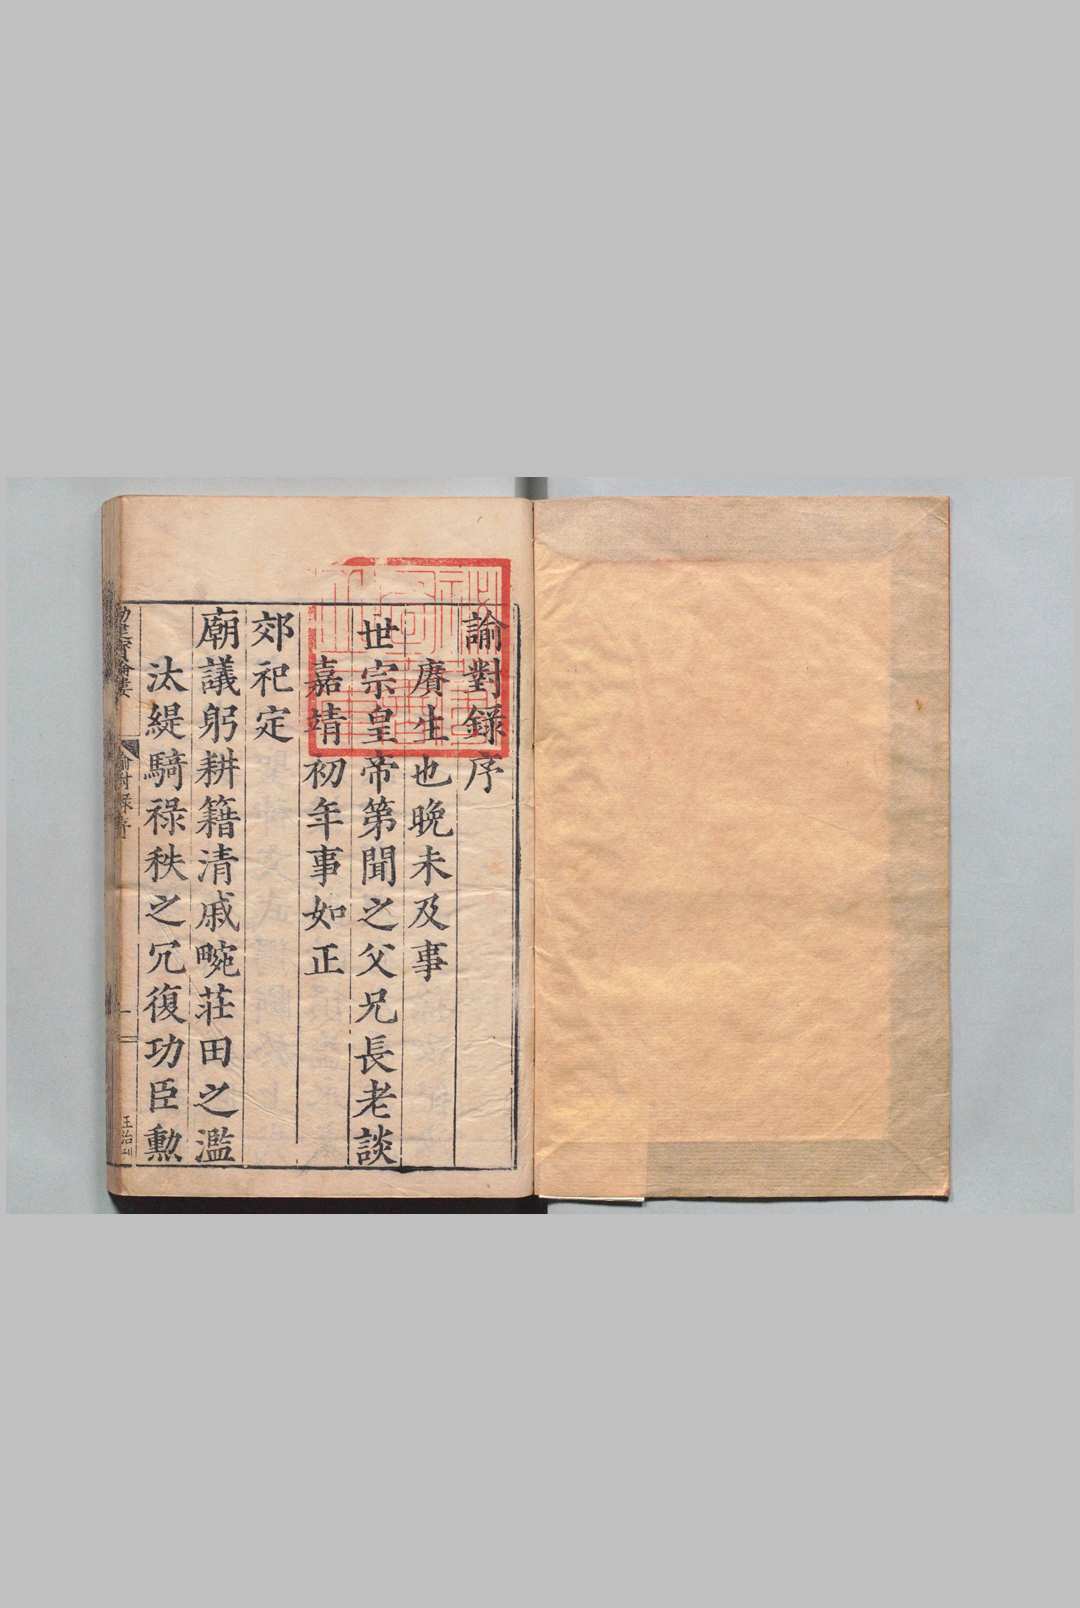 諭對録序
賡生也晚未及事
世宗皇帝第聞之父兄長老談
嘉靖初年事如正
郊祀定
廟議躬耕籍清戚畹莊田之濫
汰緹騎祿秩之冗復功臣勲
諭對録序
一